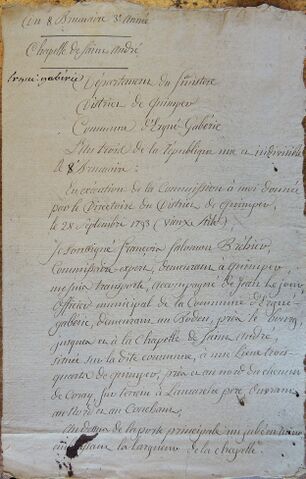 Du 8 Brumaire 3e Année
Chapelle de Saint André
Ergué-gabéric
Département du finistere
District de quimper
Commune d'Ergué Gabéric
L'an trois de la république une et indivisible
le 8 Brumaire:
En exécution de la Commission à moi donnée
par le Directoire du District de quimper,
le 28 Septembre 1793 (vieux stile)
Je soussigné françois Salomon Bréhier,
Commissaire expert, demeurant à quimper
me suis transporté, accompagné de Jean Le jour,
officier municipal de la Commune d'Ergué
gabéric, demeurant au Boden, près le bourg
jusques en à la Chapelle de Saint André,
située sur la dite commune, à une lieue trois
quarts de quimper, près et au nord du chemin
de Coray, sur terrein à ouvrant
au Nord et au Couchant,
Au dessus de la porte principale un
la largueur de la chapelle